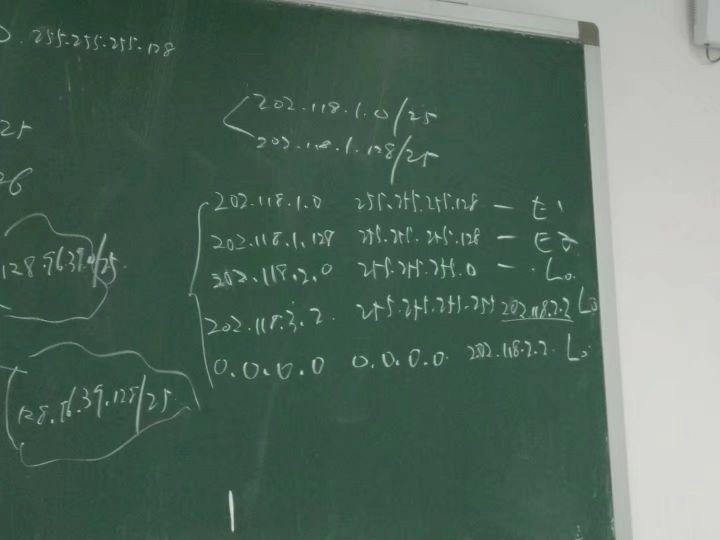 255.255.255.128
202.118.1.0/25
25
202.118.1.128/25
26
202.118.1.0 255.255.255.128 — E1
202.118.1.128 255.255.255.128 — E2
128.96.39.0/25
202.118.2.0 255.255.255.0 — L0
202.118.3.2 255.255.255.255 202.118.2.2 L0
0.0.0.0 0.0.0.0 202.118.2.2 L0
128.96.39.128/25